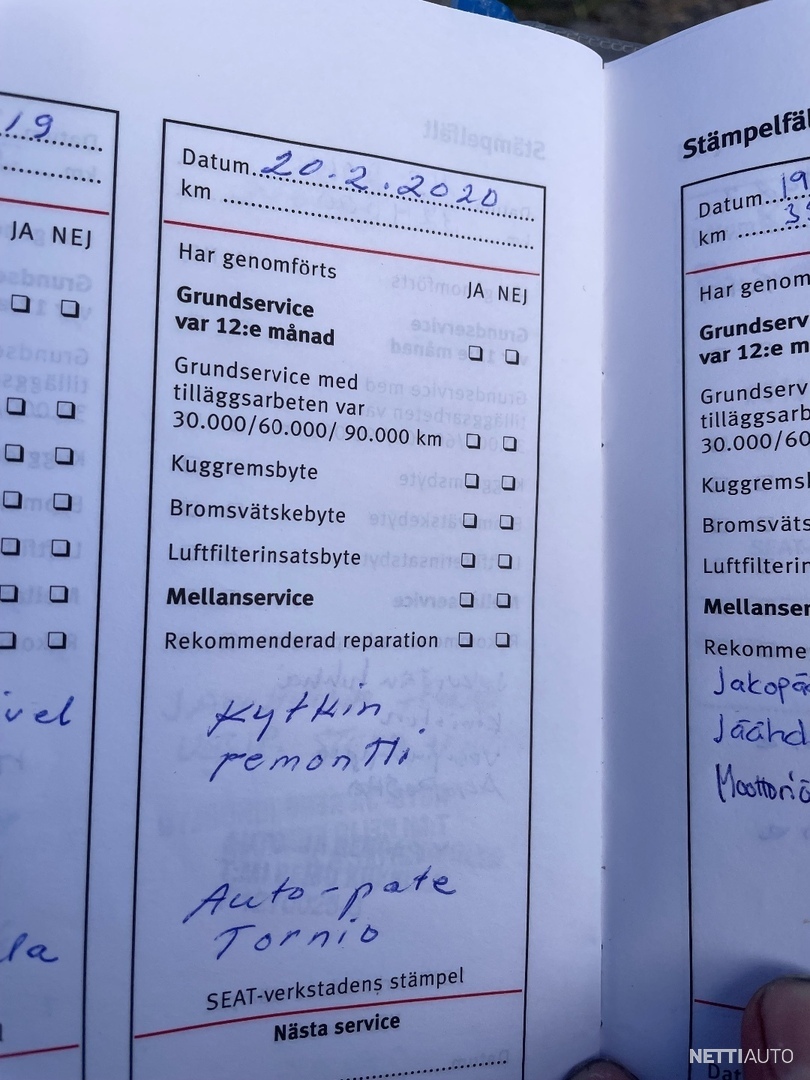 19
JA NEJ
la
Datum 20.2.2020
km
Har genomförts
JA NEJ
Grundservice
var 12:e månad
Grundservice med
tilläggsarbeten var
30.000/60.000/ 90.000 km
Kuggremsbyte
Bromsvätskebyte
Luftfilterinsatsbyte
Mellanservice
Rekommenderad reparation
Kytkin
remontti
Auto-pate
Tornio
SEAT-verkstadens stämpel
Nästa service
Stämpelfäl
Datum 19
km
Har genom
Grundserv
var 12:e m
Grundserv
tilläggsarb
30.000/60
Kuggremsl
Bromsväts
Luftfilterin
Mellanser
Rekomme
Jakopä
Jäähd
Moottoriö
Dat
NETTIAUTO